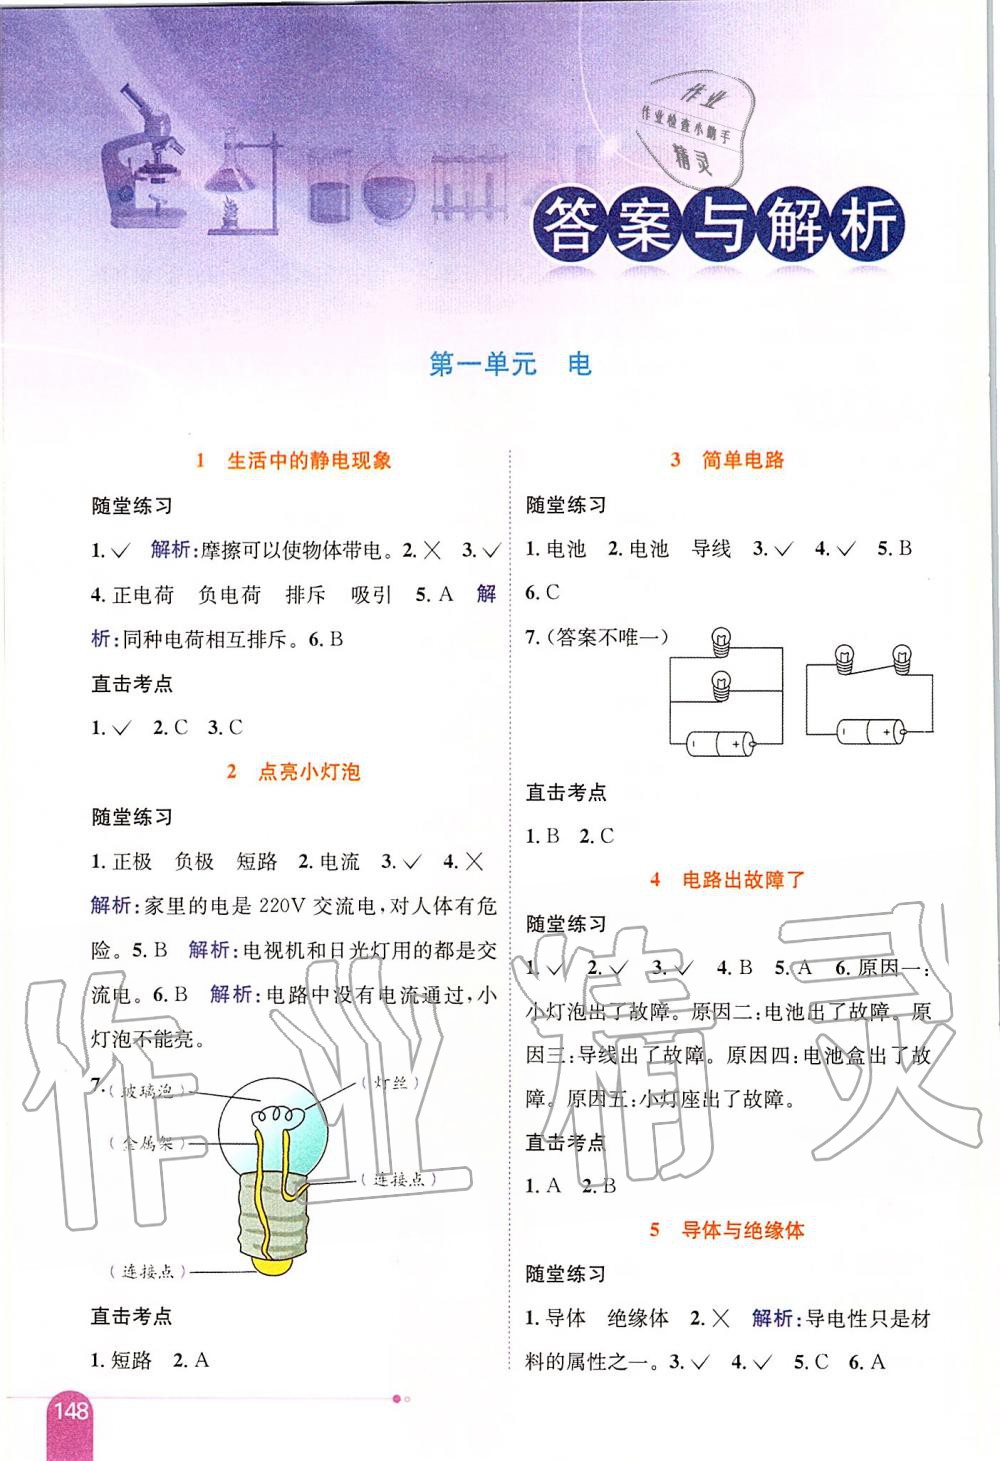 作业
作业检查小助手
精灵
答案与解析
第一单元 电
1 生活中的静电现象
随堂练习
1.✓ 解析:摩擦可以使物体带电。2.✕ 3.✓
4.正电荷 负电荷 排斥 吸引 5.A 解
析:同种电荷相互排斥。6.B
直击考点
1.✓ 2.C 3.C
2 点亮小灯泡
随堂练习
1.正极 负极 短路 2.电流 3.✓ 4.✕
解析:家里的电是 220V 交流电,对人体有危
险。5.B 解析:电视机和日光灯用的都是交
流电。6.B 解析:电路中没有电流通过,小
灯泡不能亮。
7.
(玻璃泡)
(灯丝)
(金属架)
(连接点)
(连接点)
直击考点
1.短路 2.A
3 简单电路
随堂练习
1.电池 2.电池 导线 3.✓ 4.✓ 5.B
6.C
7.(答案不唯一)
- +
- +
直击考点
1.B 2.C
4 电路出故障了
随堂练习
1.✓ 2.✓ 3.✓ 4.B 5.A 6.原因一:
小灯泡出了故障。原因二:电池出了故障。原
因三:导线出了故障。原因四:电池盒出了故
障。原因五:小灯座出了故障。
直击考点
1.A 2.B
5 导体与绝缘体
随堂练习
1.导体 绝缘体 2.✕ 解析:导电性只是材
料的属性之一。3.✓ 4.✓ 5.C 6.A
148
作业精灵